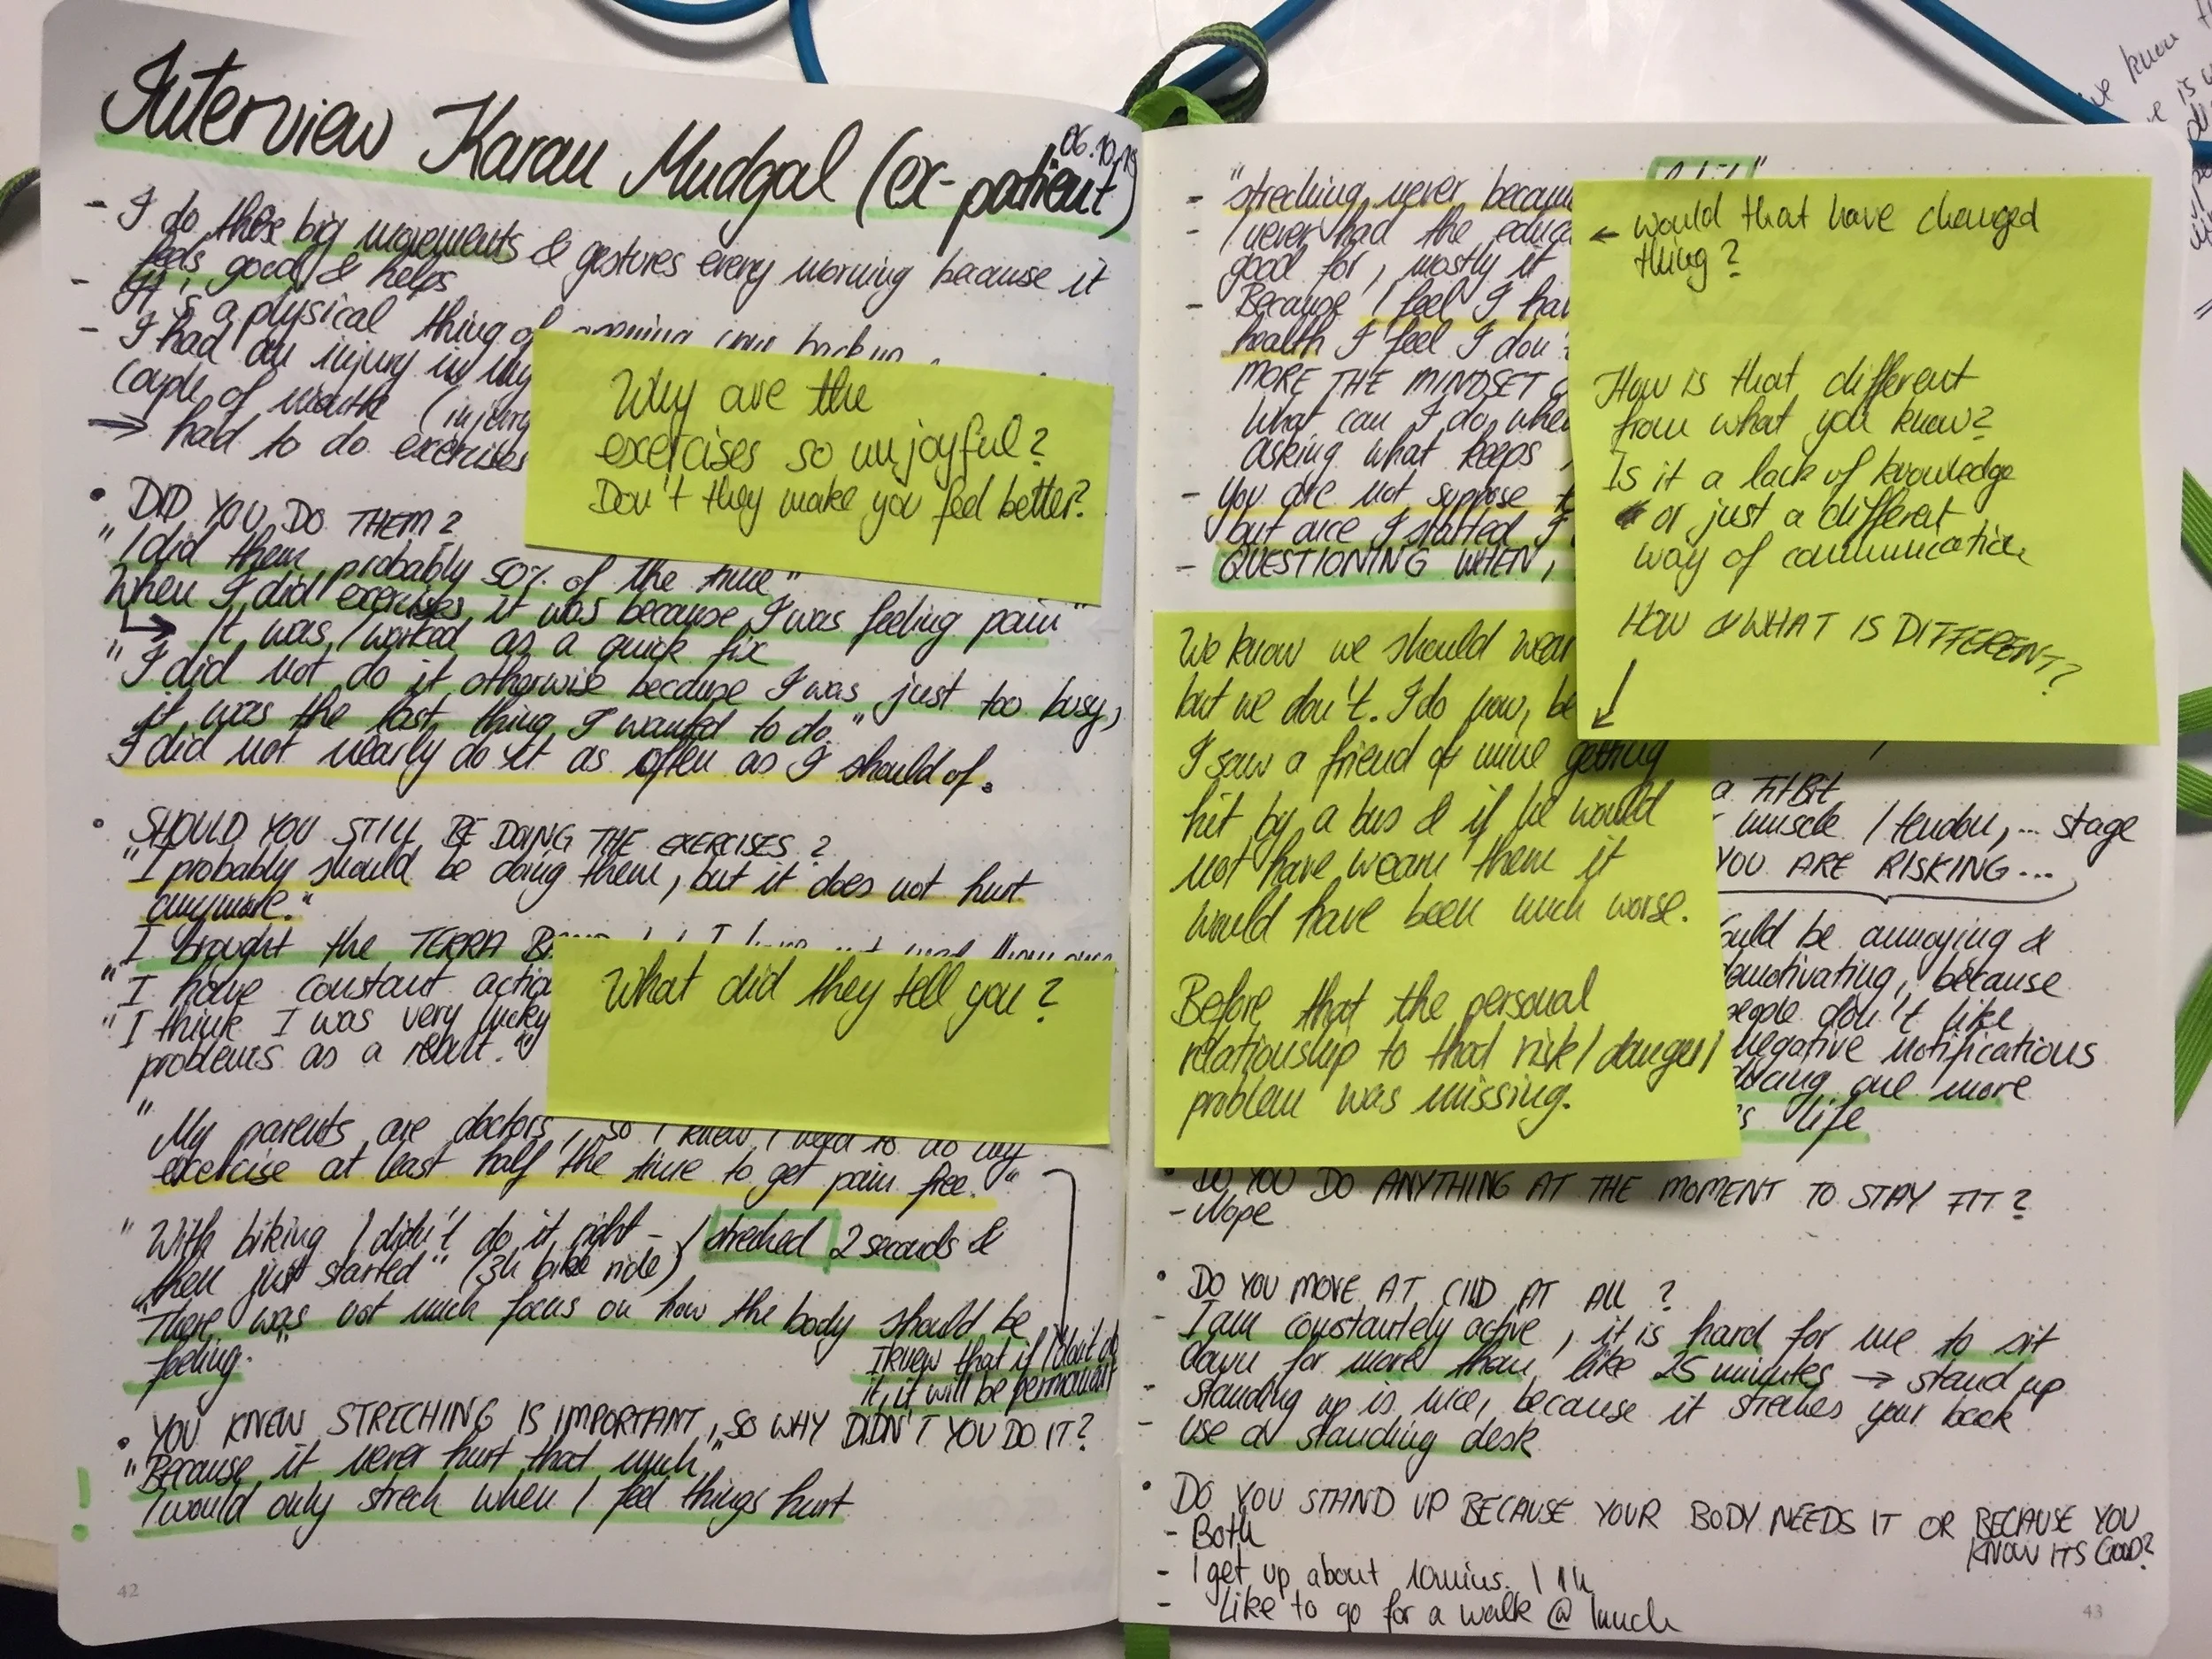 Interview Karan Mudgal (ex-patient)
06.10.15
- I do these big movements & gestures every morning because it
feels good & helps
- It's a physical thing of opening your back up
- I had an injury in my
couple of months (injury
→ had to do exercises
Why are the
exercises so unjoyful?
Don't they make you feel better?
• DID YOU DO THEM?
"I did them probably 50% of the time"
When I did exercises it was because I was feeling pain"
↳ It was / worked as a quick fix
"I did not do it otherwise because I was just too busy,
it was the last thing I wanted to do."
I did not nearly do it as often as I should of.
• SHOULD YOU STILL BE DOING THE EXERCISES?
"I probably should be doing them, but it does not hurt
anymore."
I brought the TERRA
"I have constant
"I think I was very lucky
problems as a result."
What did they tell you?
"My parents are doctors, so I knew I need to do my
exercise at least half the time to get pain free."
"With biking I didn't do it right - I streched 2 seconds &
then just started" (3h bike ride)
"There was not much focus on how the body should be
feeling."
I knew that if I don't do
it, it will be permanent
• YOU KNEW STRECHING IS IMPORTANT, SO WHY DIDN'T YOU DO IT?
"Because it never hurt that much"
! I would only strech when I feel things hurt
42
- "streching never
- I never had the
good for, mostly it
- Because I feel I
health I feel I
MORE THE MINDSET
What can I do
asking what keeps
- You are not suppose
but once I started I
- QUESTIONING WHEN,
← would that have changed
thing?
How is that different
from what you know?
Is it a lack of knowledge
or just a different
way of communication
HOW & WHAT IS DIFFERENT?
We know we should wear
but we don't. I do now,
I saw a friend of mine getting
hit by a bus & if he would
not have wearn them it
would have been much worse.
Before that the personal
relationship to that risk/danger/
problem was missing.
a FITBIT
muscle / tendon, ... stage
YOU ARE RISKING...
be annoying &
demotivating, because
people don't like
negative notifications
one more
life
• DO YOU DO ANYTHING AT THE MOMENT TO STAY FIT?
- Nope
• DO YOU MOVE AT CIID AT ALL?
- I am constantely active, it is hard for me to sit
down for more than like 25 minutes → stand up
- standing up is nice, because it streches your back
- use a standing desk
• DO YOU STAND UP BECAUSE YOUR BODY NEEDS IT OR BECAUSE YOU
KNOW ITS GOOD?
- Both
- I get up about 10mins. / 1h
- Like to go for a walk @ lunch
43